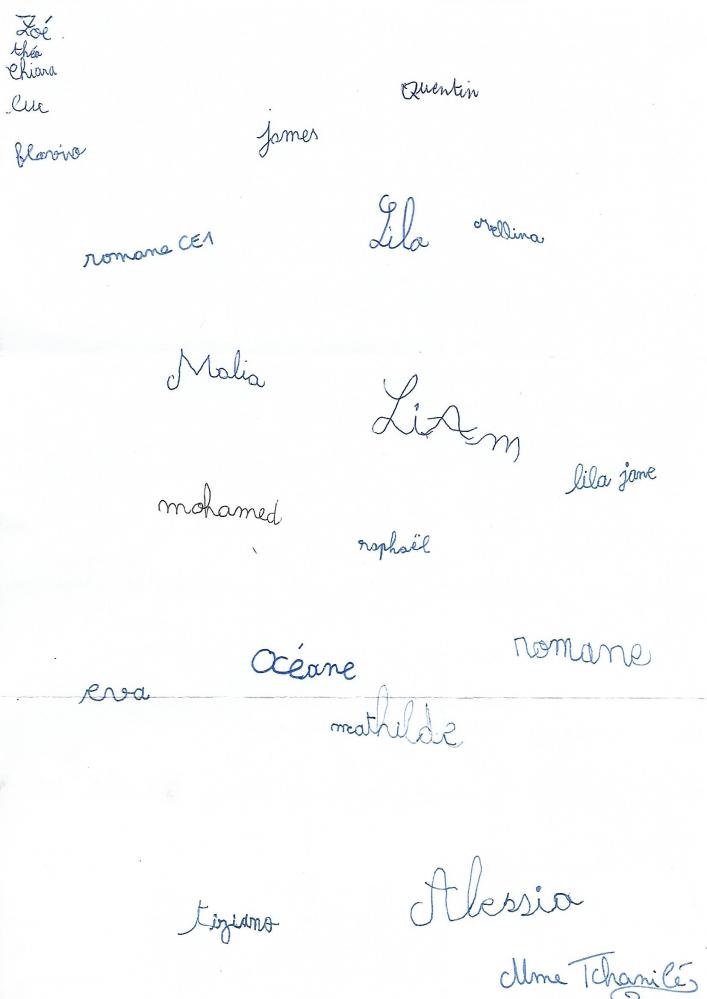 Zoé
théo
Chiara
Quentin
Luc
james
flavio
Lila
romane CE1
Malia
LiAm
lila jane
mohamed
raphaël
romane
Océane
eva
mathilde
Alessia
tiziano
Mme Tchanilé